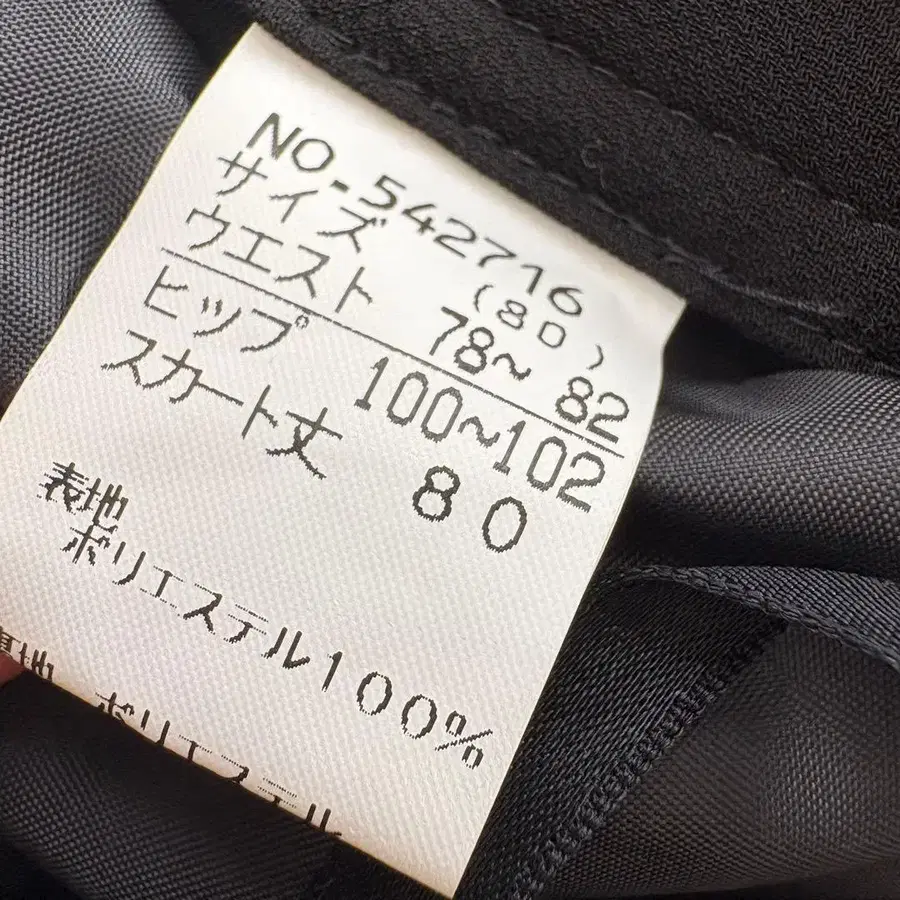 NO-542716
サイズ (80)
ウエスト 78~ 82
ヒップ 100~102
スカート丈 80
表地
ポリエステル100%
裏地 ポリエステル